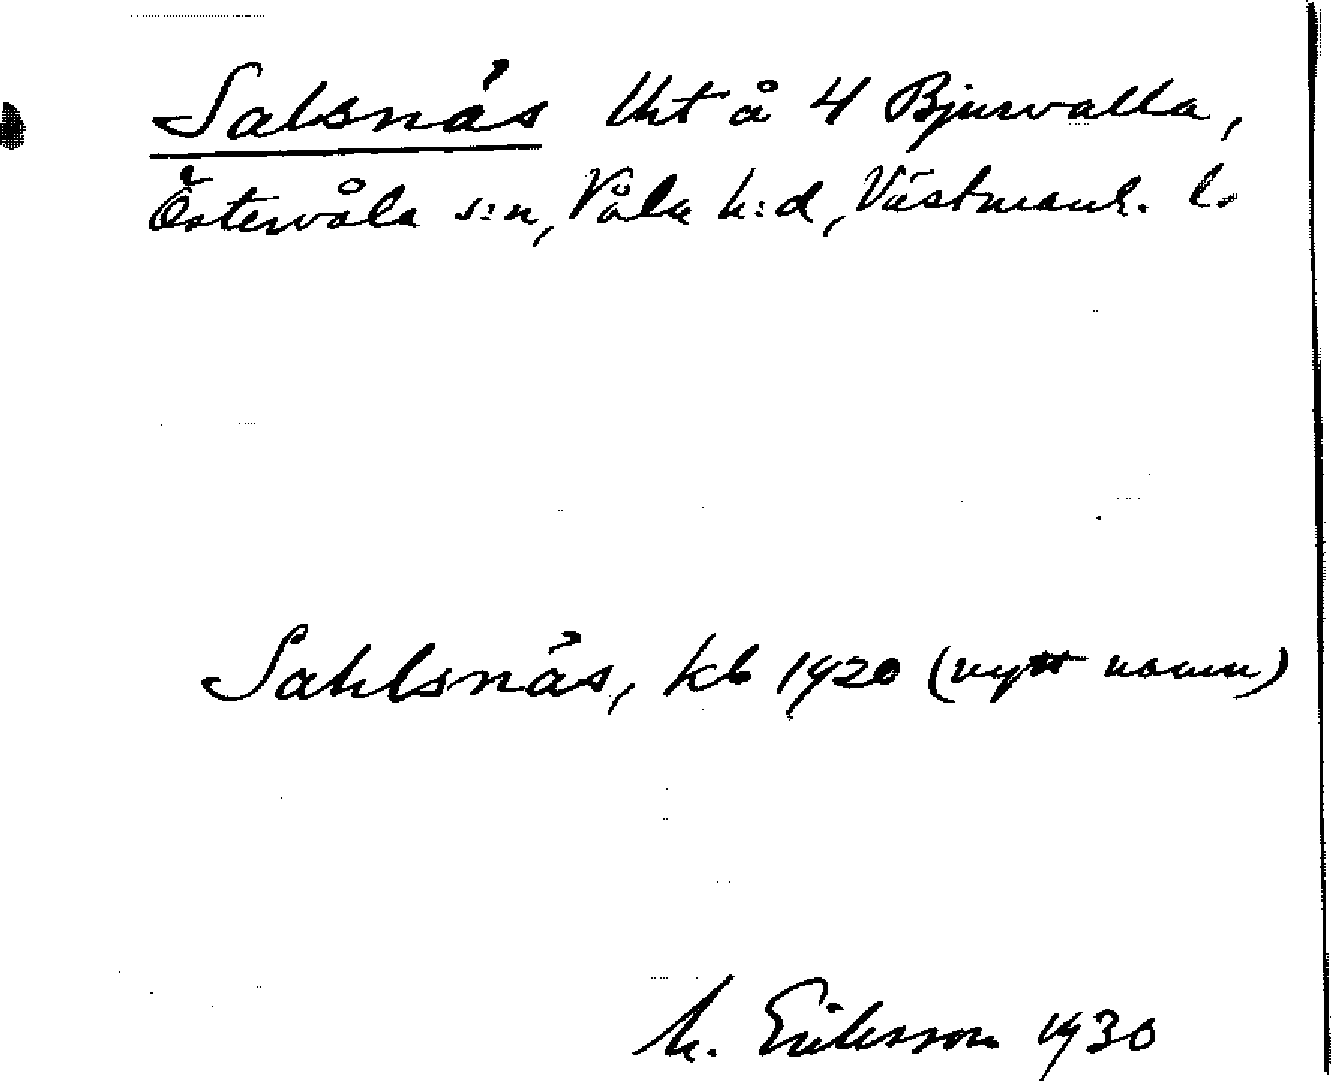 Salsnäs Uht å 4 Bjurvalla,
Östervåla s:n, Våla h:d, Västmanl. l.
Sahlsnäs, kb 1920 (nytt namn)
M. Eriksson 1930